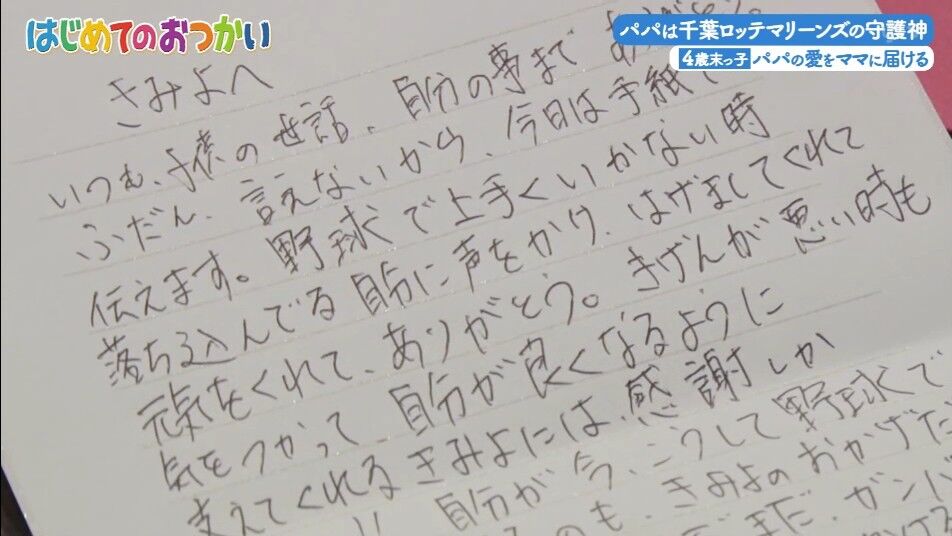 はじめてのおつかい
パパは千葉ロッテマリーンズの守護神
4歳末っ子 パパの愛をママに届ける
きみよへ
いつも、子供の世話、自分の事まで
ふだん、言えないから、今日は手紙で
伝えます。野球で上手くいかない時
落ち込んでる自分に声をかけ、はげましてくれて
元気をくれて、ありがとう。きげんが悪い時も
気をつかって、自分が良くなるように
支えてくれるきみよには、感謝しか
自分が今、こうして野球で
のも、きみよのおかげだ
まだ、ガンバ